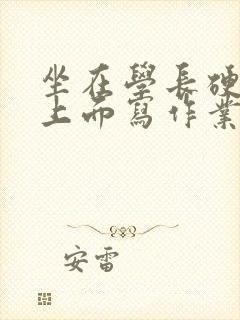 坐在學長硬
上而寫作業
安雷